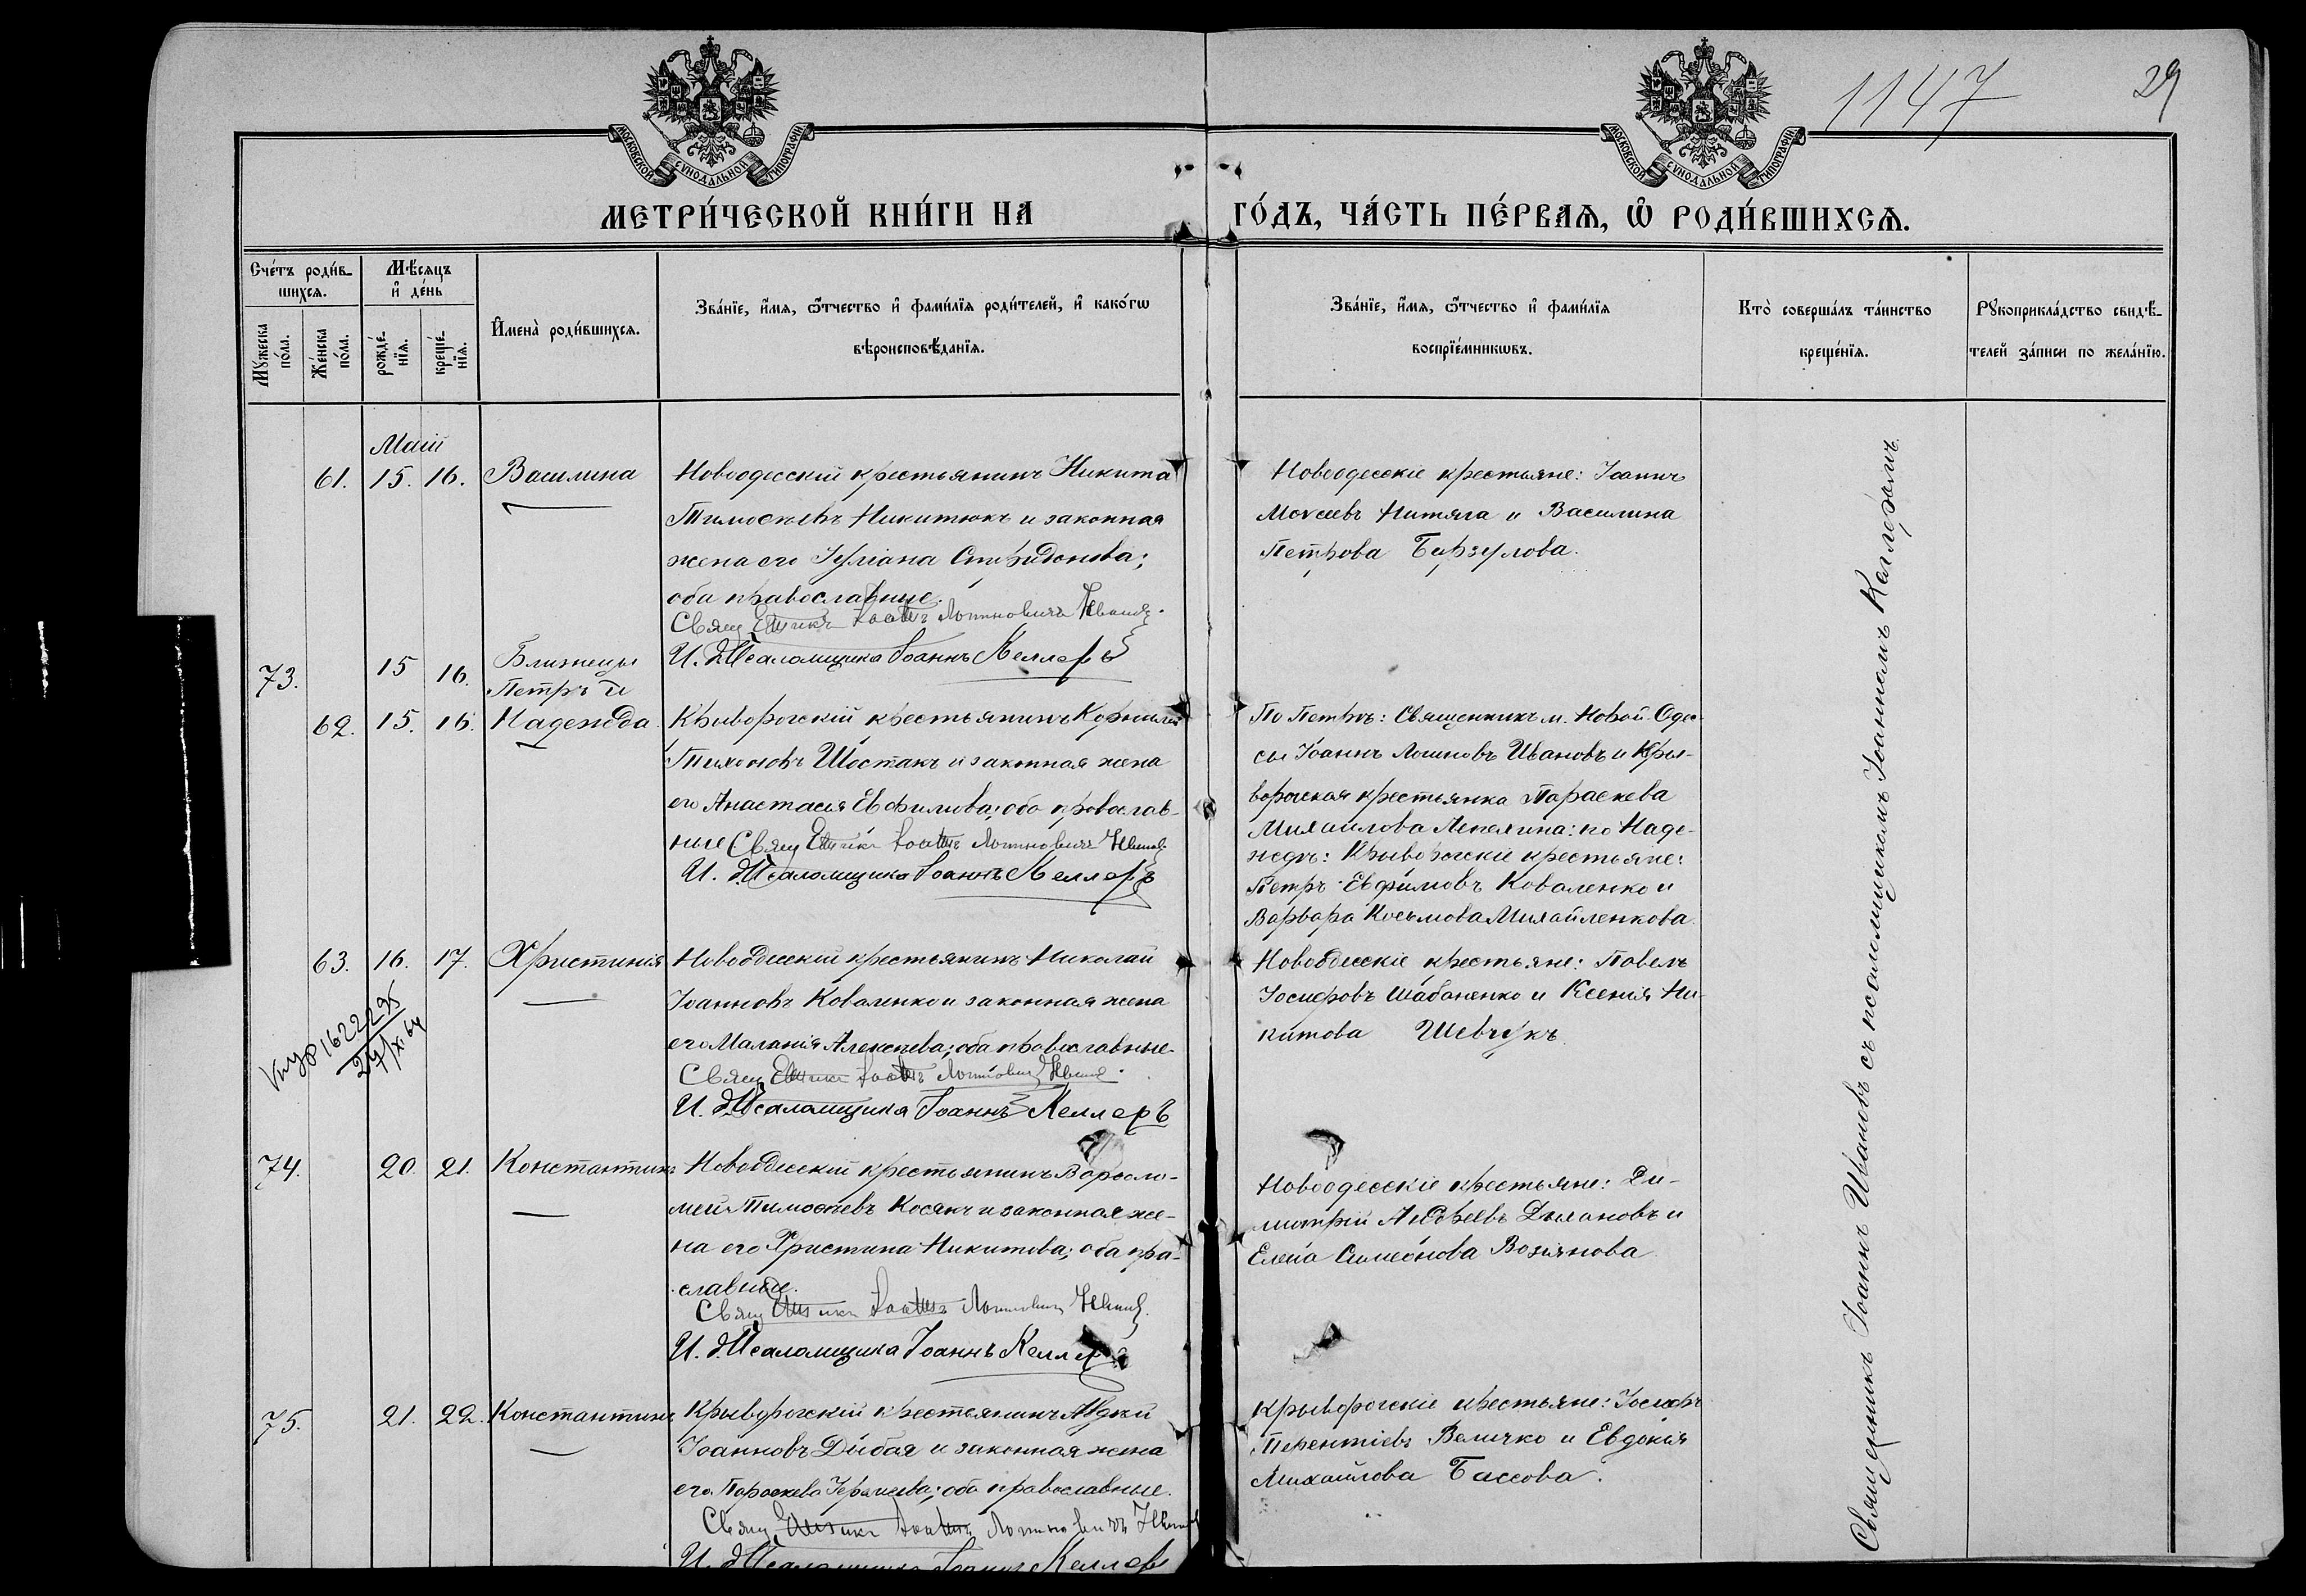 1147
29
МОСКОВСКОЙ СѴНОДАЛЬНОЙ ТИПОГРАФІИ
МОСКОВСКОЙ СѴНОДАЛЬНОЙ ТИПОГРАФІИ
МЕТРИ́ЧЕСКОЙ КНИ́ГИ НА
ГО́ДЪ, ЧА́СТЬ ПЕ́РВАѦ, Ѡ҆ РОДИ́ВШИХСѦ.
Сче́тъ роди́в-
шихсѧ.
Мꙋ́жеска
по́ла.
Же́нска
по́ла.
Мѣ́сѧцъ
и҆ де́нь
рожде́-
нїѧ.
креще́-
нїѧ.
И҆мена̀ роди́вшихсѧ.
Зва́нїе, и҆́мѧ, ѻ҆́тчество и҆ фами́лїѧ роди́телей, и҆ како́гѡ
вѣроисповѣ́данїѧ.
Зва́нїе, и҆́мѧ, ѻ҆́тчество и҆ фами́лїѧ
воспрїе́мникѡвъ.
Кто̀ соверша́лъ та́инство
креще́нїѧ.
Рꙋкоприкла́дство свидѣ́-
телей за́писи по жела́нїю.
Май
61. 15. 16. Василина
Новоодесскій крестьянинъ Никита
Тимоѳеевъ Никитюкъ и законная
жена его Іуліана Спиридонова;
оба православные.
Свящ Іоаннъ Логиновичъ Ивановъ
И. д. Псаломщика Іоаннъ Келлеръ
Новоодесскіе крестьяне: Іоаннъ
Моѵсеевъ Питяга и Василина
Петрова Барзулова.
73. 15 16. Близнецы
Петръ и
62. 15. 16. Надежда
Крыворогскій крестьянинъ Корнилій
Тихоновъ Шостакъ и законная жена
его Анастасія Евфимова; оба православ-
ные Свящ Іоаннъ Логиновичъ Ивановъ
И. д. Псаломщика Іоаннъ Келлеръ
По Петрѣ: Священникъ м. Новой-Одес-
сы Іоаннъ Логиновъ Ивановъ и Кры-
ворогская крестьянка Параскева
Михаилова Лепехина: по Наде-
ждѣ: Крыворогскіе крестьяне:
Петръ Евфимовъ Коваленко и
Варвара Косьмова Михайленкова.
63. 16. 17. Христинія
Новоодесскій крестьянинъ Николай
Іоанновъ Коваленко и законная жена
его Маланія Алексѣева; оба православные.
Свящ Іоаннъ Логиновичъ Ивановъ
И. д. Псаломщика Іоаннъ Келлеръ
Новоодесскіе крестьяне: Павелъ
Іосифовъ Шабаненко и Ксенія Ни-
китова Шевчукъ.
1622295
24/XI 64
74. 20. 21. Константинъ
Новоодесскій крестьянинъ Варѳоло-
мей Тимоѳеевъ Косякъ и законная же-
на его Христина Никитова; оба пра-
славные.
Свящ Іоаннъ Логиновичъ Ивановъ
И. д. Псаломщика Іоаннъ Келлеръ
Новоодесскіе крестьяне: Ди-
митрій Андреевъ Дылановъ и
Елена Симеонова Возіянова
75. 21. 22. Константинъ
Крыворогскій крестьянинъ Авдій
Іоанновъ Дибая и законная жена
его Параскева Іереміева; оба православные.
Свящ Іоаннъ Логиновичъ Ивановъ
И. д. Псаломщика Іоаннъ Келлеръ
Крыворогскіе крестьяне: Іосифъ
Терентіевъ Величко и Евдокія
Михайлова Бассова.
Священникъ Іоаннъ Ивановъ съ псаломщикомъ Іоанномъ Келлеромъ.